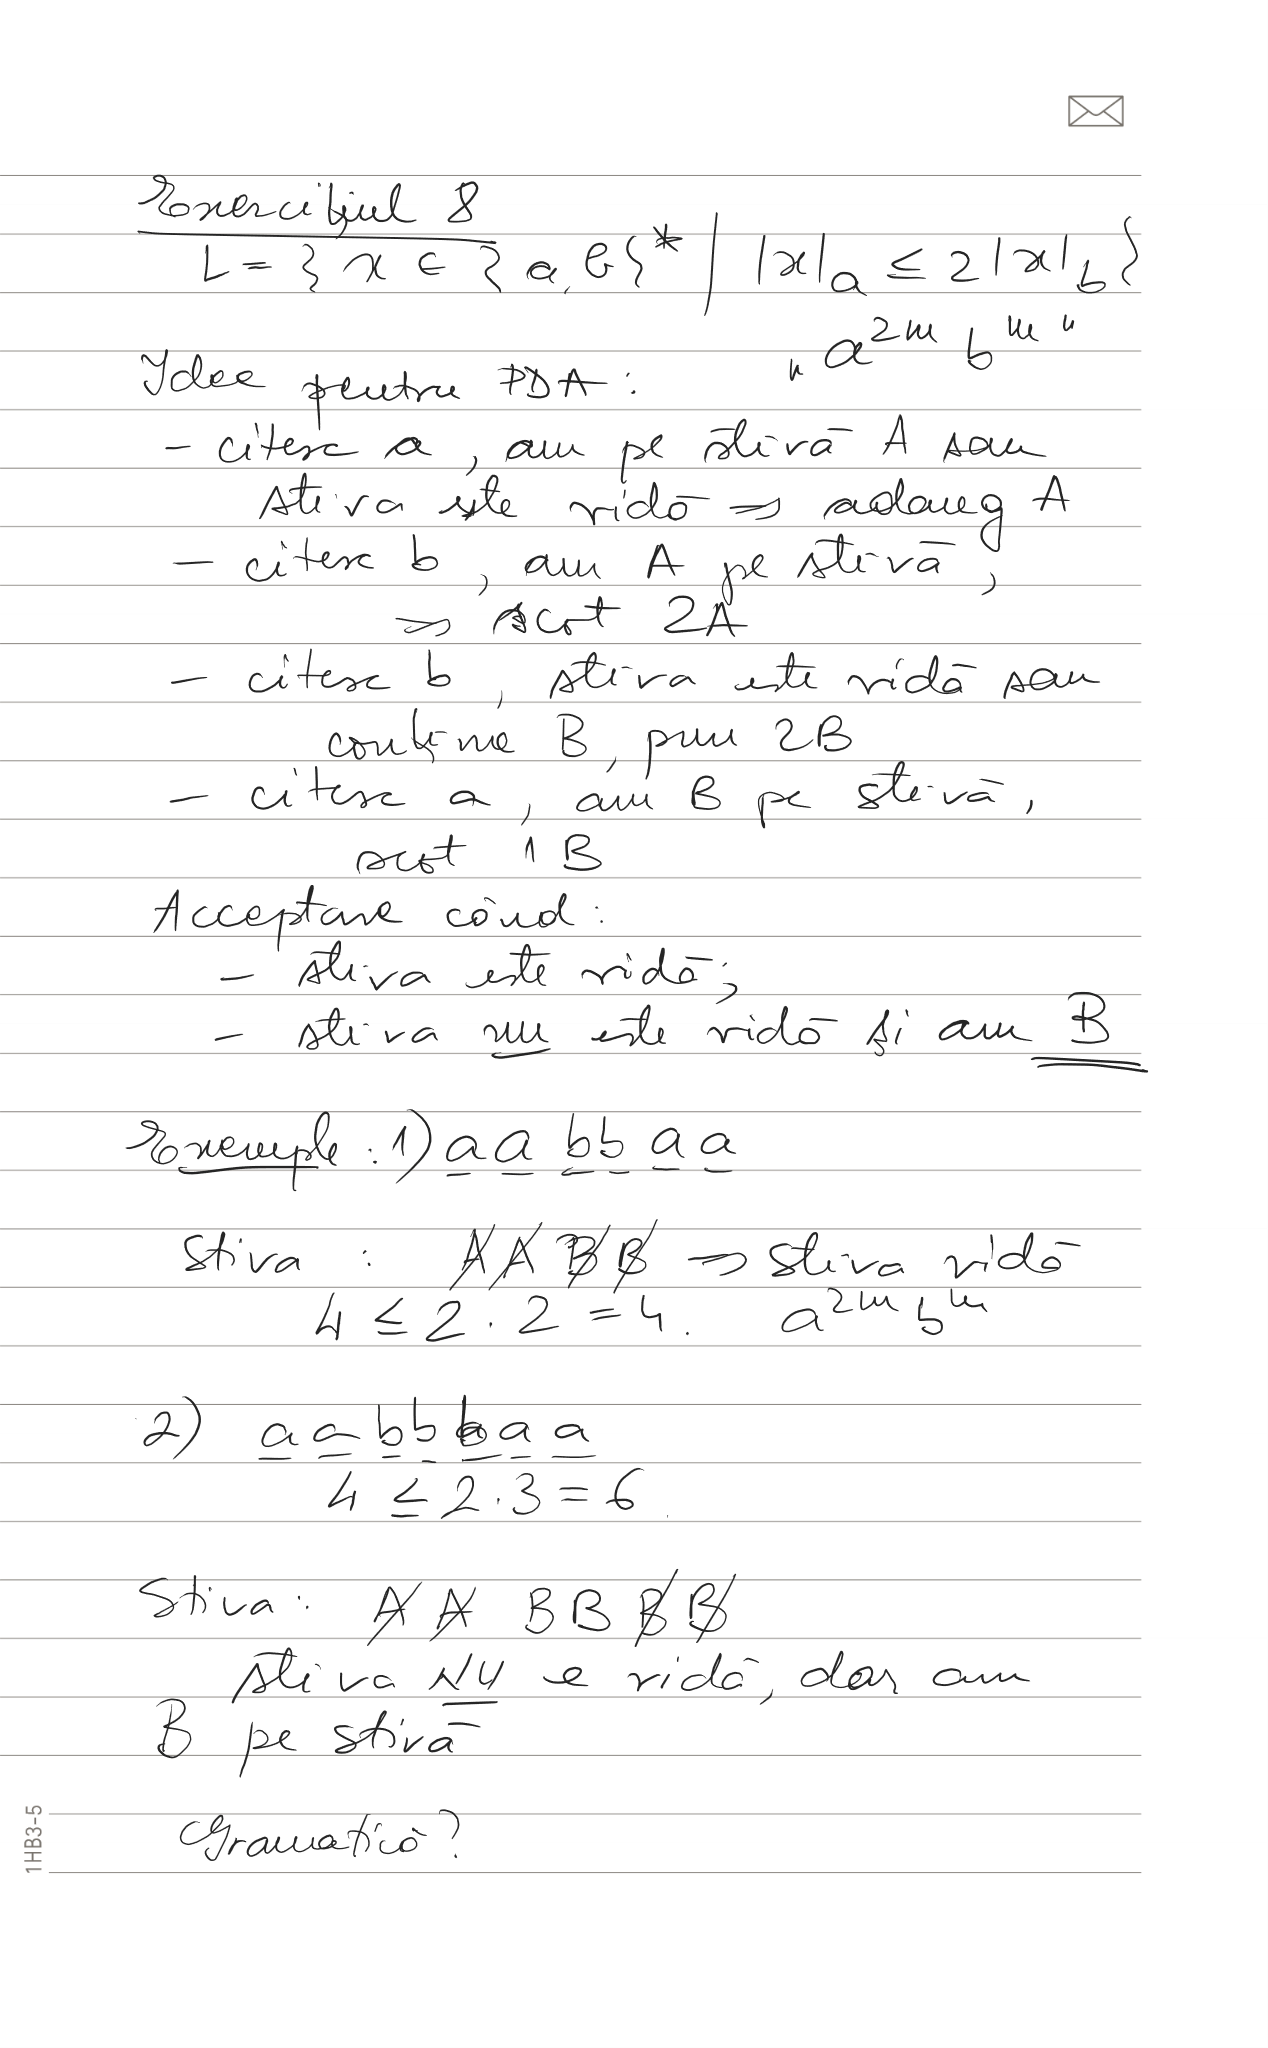 Exercițiul 8
L = { x ∈ { a, b }* | |x|a ≤ 2|x|b }
„ a^2m b^m "
Idee pentru PDA :
- citesc a , am pe stivă A sau
stiva este vidă => adaug A
- citesc b , am A pe stivă ,
=> scot 2A
- citesc b , stiva este vidă sau
conține B, pun 2B
- citesc a , am B pe stivă ,
scot 1 B
Acceptare când :
- stiva este vidă ;
- stiva nu este vidă și am B
Exemple : 1) a a b b a a
Stiva : A A B B => stiva vidă
4 ≤ 2 . 2 = 4 . a^2m b^m
2) a a b b b a a
4 ≤ 2 . 3 = 6 .
Stiva : A A B B B B
stiva NU e vidă, dar am
B pe stivă
Gramatică ?
1HB3-5